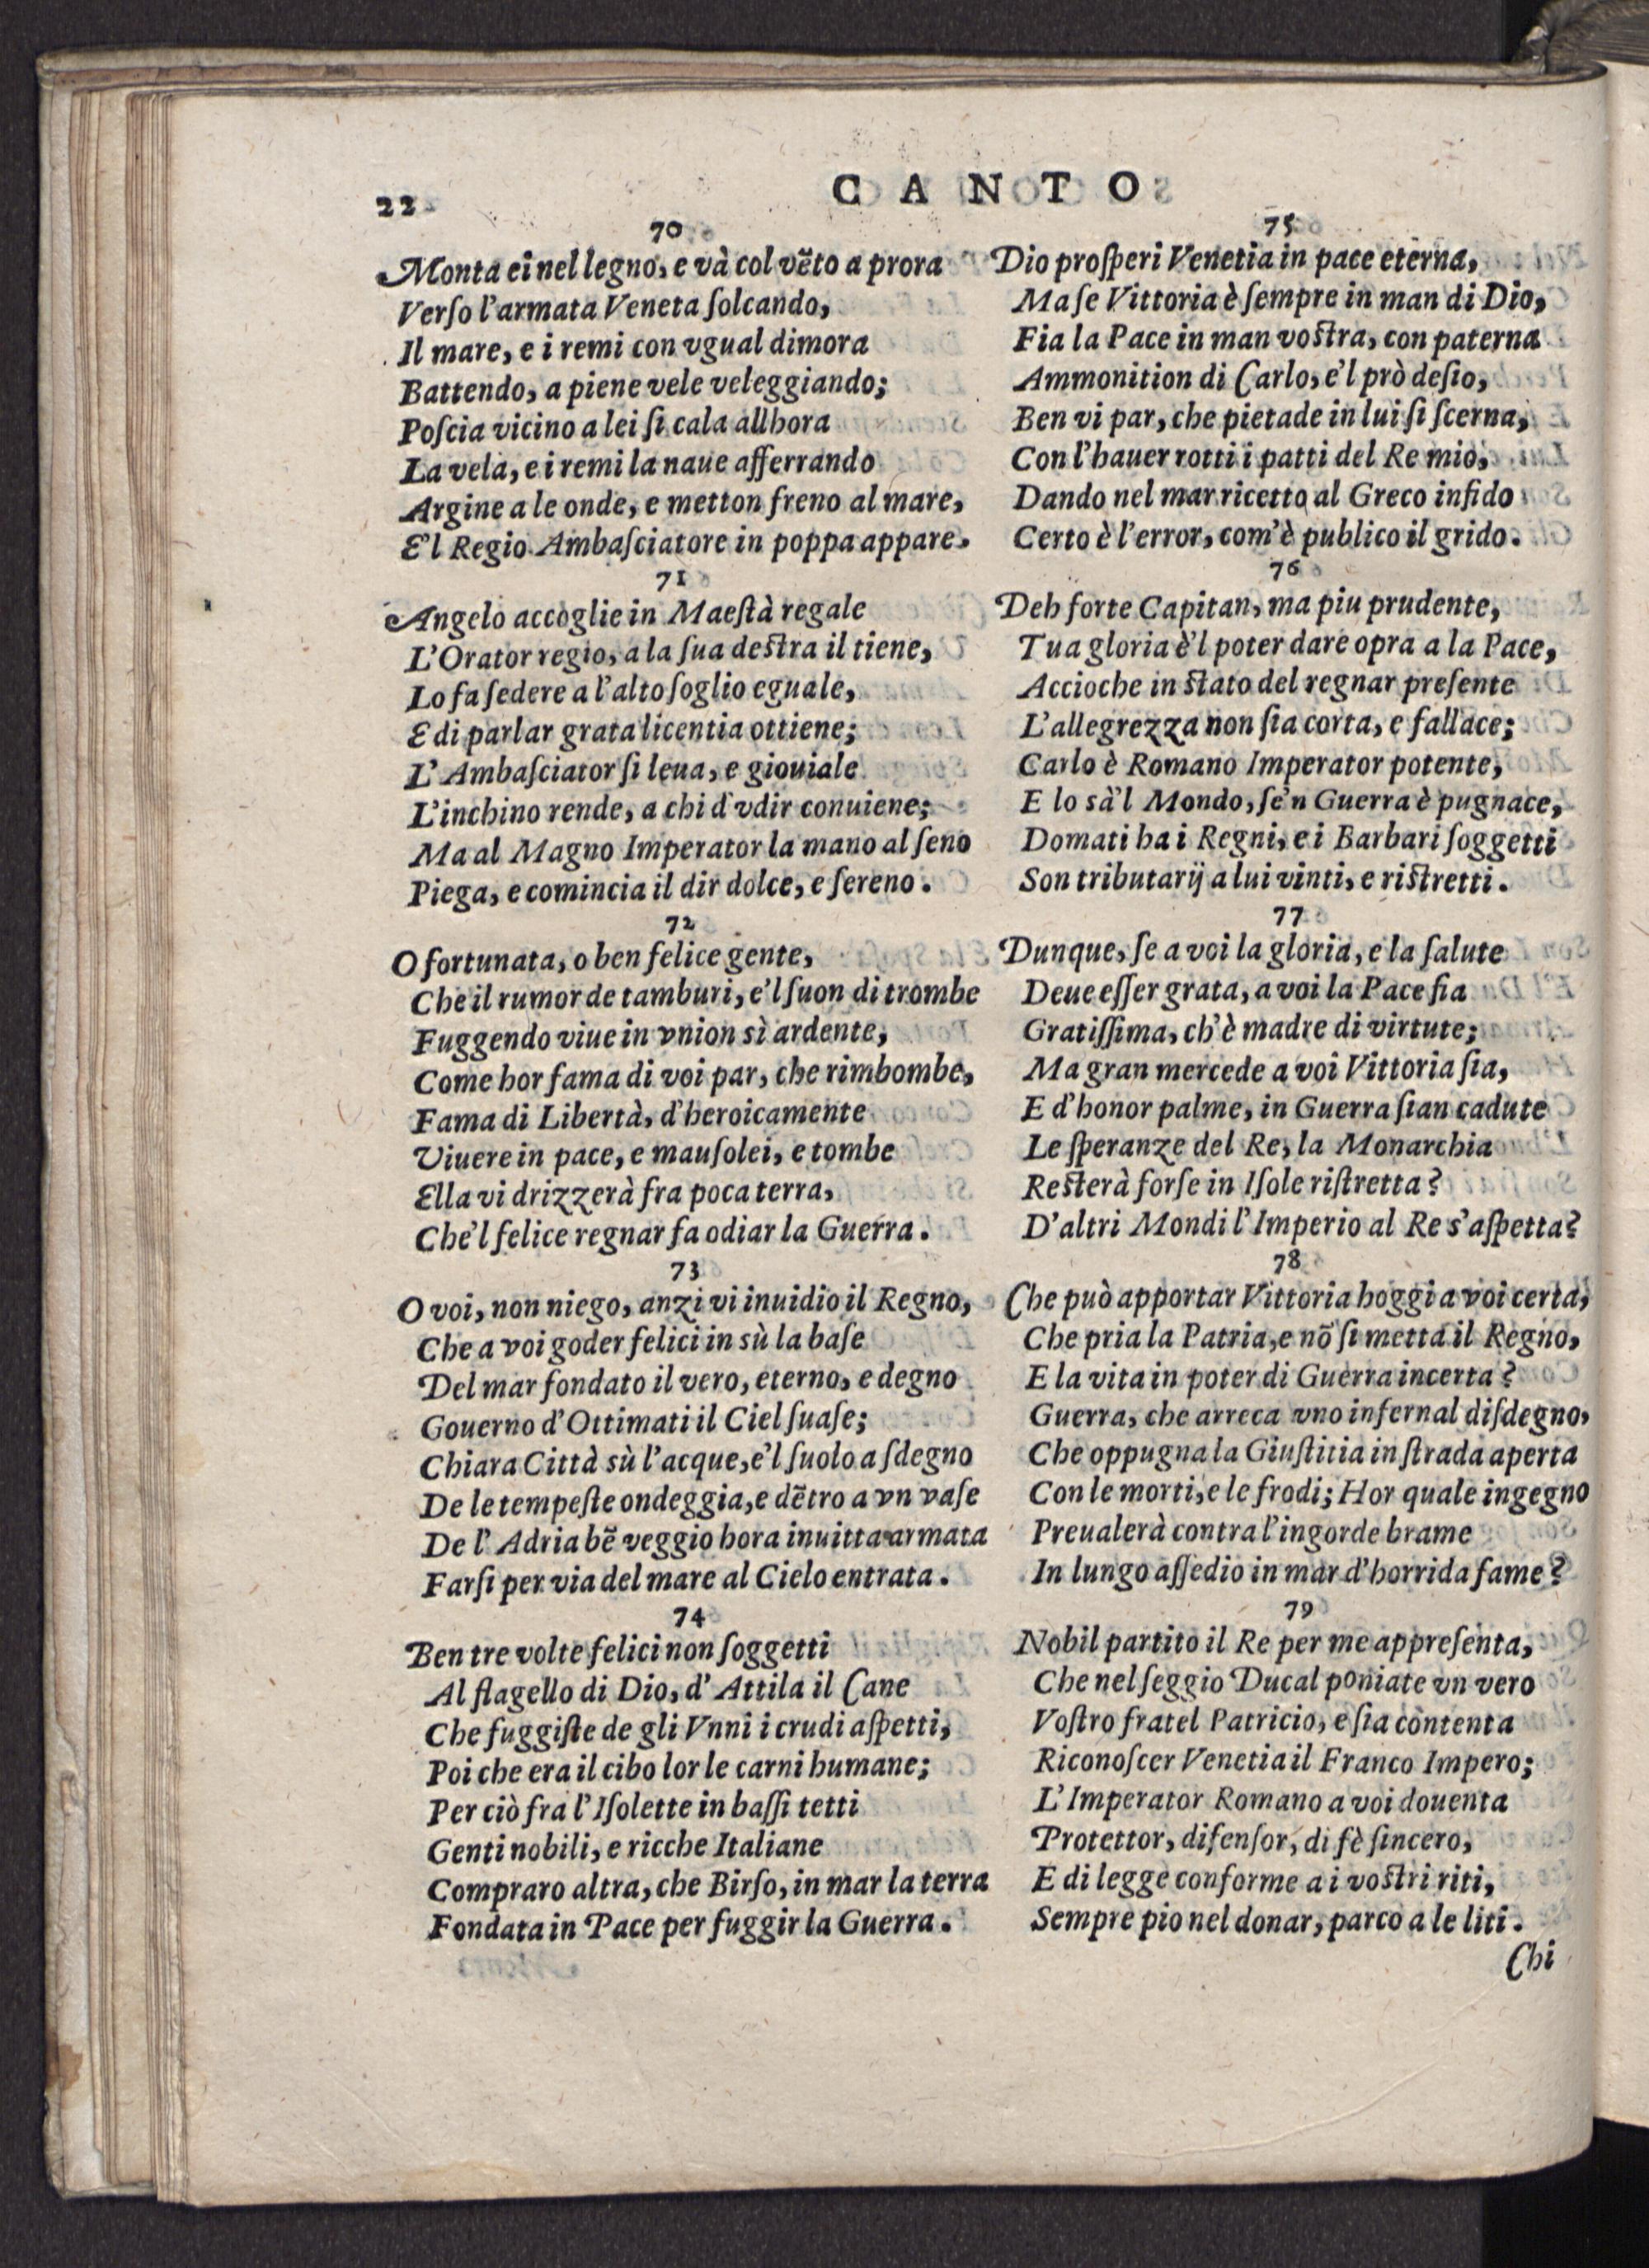 22
CANTO
70
Monta ei nel legno, e và col vẽto a prora
Verſo l'armata Veneta ſolcando,
Il mare, e i remi con vgual dimora
Battendo, a piene vele veleggiando;
Poſcia vicino a lei ſi cala allhora
La vela, e i remi la naue afferrando
Argine a le onde, e metton freno al mare,
E'l Regio Ambaſciatore in poppa appare.
71
Angelo accoglie in Maeſtà regale
L'Orator regio, a la ſua deſtra il tiene,
Lo fa ſedere a l'alto ſoglio eguale,
E di parlar grata licentia ottiene;
L'Ambaſciator ſi leua, e giouiale
L'inchino rende, a chi d'vdir conuiene;
Ma al Magno Imperator la mano al ſeno
Piega, e comincia il dir dolce, e ſereno.
72
O fortunata, o ben felice gente,
Che il rumor de tamburi, e'l ſuon di trombe
Fuggendo viue in vnion sì ardente,
Come hor fama di voi par, che rimbombe,
Fama di Libertà, d'heroicamente
Viuere in pace, e mauſolei, e tombe
Ella vi drizzerà fra poca terra,
Che'l felice regnar fa odiar la Guerra.
73
O voi, non niego, anzi vi inuidio il Regno,
Che a voi goder felici in sù la baſe
Del mar fondato il vero, eterno, e degno
Gouerno d'Ottimati il Ciel ſuaſe;
Chiara Città sù l'acque, e'l ſuolo a ſdegno
De le tempeſte ondeggia, e dẽtro a vn vaſe
De l'Adria bẽ veggio hora inuitta armata
Farſi per via del mare al Cielo entrata.
74
Ben tre volte felici non ſoggetti
Al flagello di Dio, d'Attila il Cane
Che fuggiſte de gli Vnni i crudi aſpetti,
Poi che era il cibo lor le carni humane;
Per ciò fra l'Iſolette in baſſi tetti
Genti nobili, e ricche Italiane
Compraro altra, che Birſo, in mar la terra
Fondata in Pace per fuggir la Guerra.
75
Dio proſperi Venetia in pace eterna,
Ma ſe Vittoria è ſempre in man di Dio,
Fia la Pace in man voſtra, con paterna
Ammonition di Carlo, e'l prò deſio,
Ben vi par, che pietade in lui ſi ſcerna,
Con l'hauer rotti i patti del Re mio,
Dando nel mar ricetto al Greco infido
Certo è l'error, com'è publico il grido.
76
Deh forte Capitan, ma piu prudente,
Tua gloria è'l poter dare opra a la Pace,
Accioche in ſtato del regnar preſente
L'allegrezza non ſia corta, e fallace;
Carlo è Romano Imperator potente,
E lo sà'l Mondo, ſe'n Guerra è pugnace,
Domati ha i Regni, e i Barbari ſoggetti
Son tributarij a lui vinti, e riſtretti.
77
Dunque, ſe a voi la gloria, e la ſalute
Deue eſſer grata, a voi la Pace fia
Gratiſſima, ch'è madre di virtute;
Ma gran mercede a voi Vittoria ſia,
E d'honor palme, in Guerra ſian cadute
Le ſperanze del Re, la Monarchia
Reſterà forſe in Iſole riſtretta?
D'altri Mondi l'Imperio al Re s'aſpetta?
78
Che può apportar Vittoria hoggi a voi certa,
Che pria la Patria, e nõ ſi metta il Regno,
E la vita in poter di Guerra incerta?
Guerra, che arreca vno infernal diſdegno,
Che oppugna la Giuſtitia in ſtrada aperta
Con le morti, e le frodi; Hor quale ingegno
Preualerà contra l'ingorde brame
In lungo aſſedio in mar d'horrida fame?
79
Nobil partito il Re per me appreſenta,
Che nel ſeggio Ducal poniate vn vero
Voſtro fratel Patricio, e ſia contenta
Riconoſcer Venetia il Franco Impero;
L'Imperator Romano a voi douenta
Protettor, difenſor, di fè ſincero,
E di legge conforme a i voſtri riti,
Sempre pio nel donar, parco a le liti.
Chi